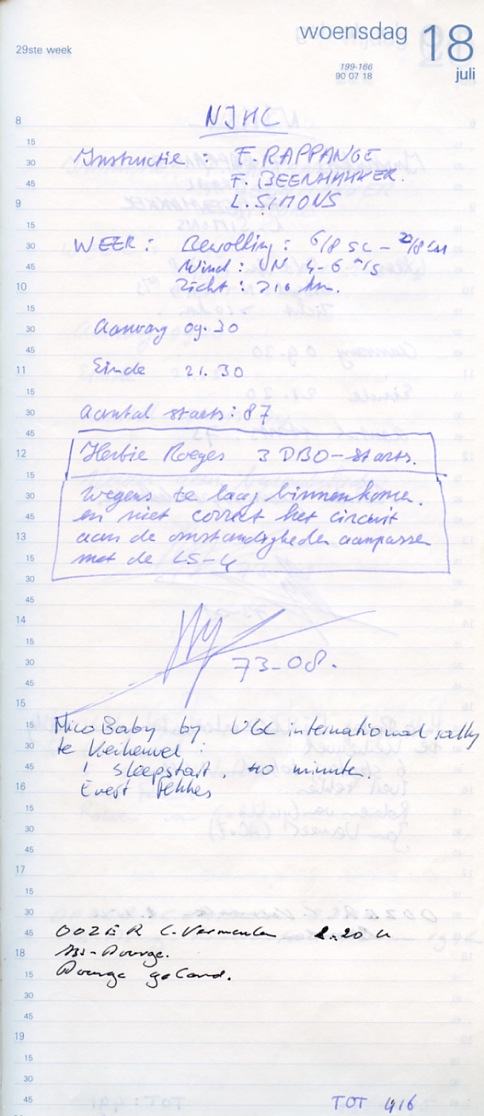 woensdag 18
29ste week
199-166
90 07 18
juli
NJHC
8
15
Instructie : F. RAPPANGE
30
F. BEENHAKKER.
45
L. SIMONS
9
15
WEER : Bewolking : 6/8 sc -
30
Wind : VN 4-6 m/s
45
Zicht : >10 km.
10
15
Aanvang 09.30
30
45
Einde 21.30
11
15
Aantal starts : 87
30
45
Herbie Roeges 3 DBO-starts.
12
15
wegens te laag binnenkomen.
30
en niet correct het circuit
45
aan de omstandigheden aanpassen
13
met de LS-4
15
30
45
14
15
73-08.
30
45
15
Nico Baby by UGC international rally
15
te Keiheuvel :
30
1 sleepstart, 40 minuten.
45
Evert
16
15
30
45
17
15
30
OOZER C. Vermeulen 2.20 u
45
18
geland.
15
30
45
19
15
30
45
TOT 416